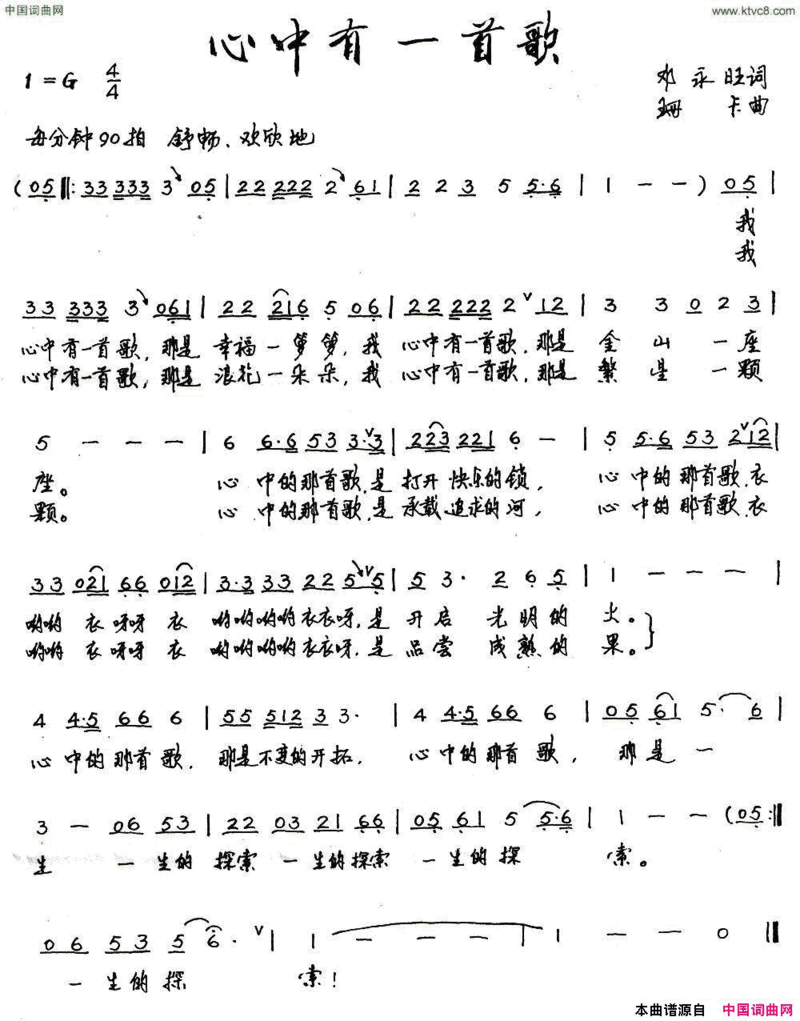 中国词曲网
www.ktvc8.com
心中有一首歌
1=G 4/4
邓永旺词
珊卡曲
每分钟90拍 舒畅、欢欣地
(05‖: 33 333 3 05 | 22 222 2 61 | 2 2 3 5 5·6 | 1 — — ) 05 |
我
我
33 333 3 061 | 22 216 5 06 | 22 222 2 ∨12 | 3 3 0 2 3 |
心中有一首歌,那是 幸福一箩箩,我 心中有一首歌,那是 金山一座
心中有一首歌,那是 浪花一朵朵,我 心中有一首歌,那是 繁星一颗
5 — — — | 6 6·6 53 3·∨3 | 223 221 6 — | 5 5·6 53 2∨12 |
座。 心中的那首歌,是 打开快乐的锁, 心中的那首歌,衣
颗。 心中的那首歌,是 承载追求的河, 心中的那首歌,衣
33 021 66 012 | 3·3 33 22 5∨5 | 5 3· 2 6 5 | 1 — — — |
哟哟 衣呀呀 衣 哟哟哟哟衣衣呀,是 开启 光明的 火。
哟哟 衣呀呀 衣 哟哟哟哟衣衣呀,是 品尝 成熟的 果。
4 4·5 66 6 | 55 512 3 3· | 4 4·5 66 6 | 05 61 5· 6 |
心中的那首歌, 那是不变的开拓, 心中的那首歌, 那是一
3 — 06 53 | 22 03 21 66 | 05 61 5 5·6 | 1 — — (05 :‖
生 一生的 探索 一生的探索 一生的探 索。
06 53 5 6· ∨ | 1 — — — | 1 — — 0 ‖
一生的探 索!
本曲谱源自 中国词曲网